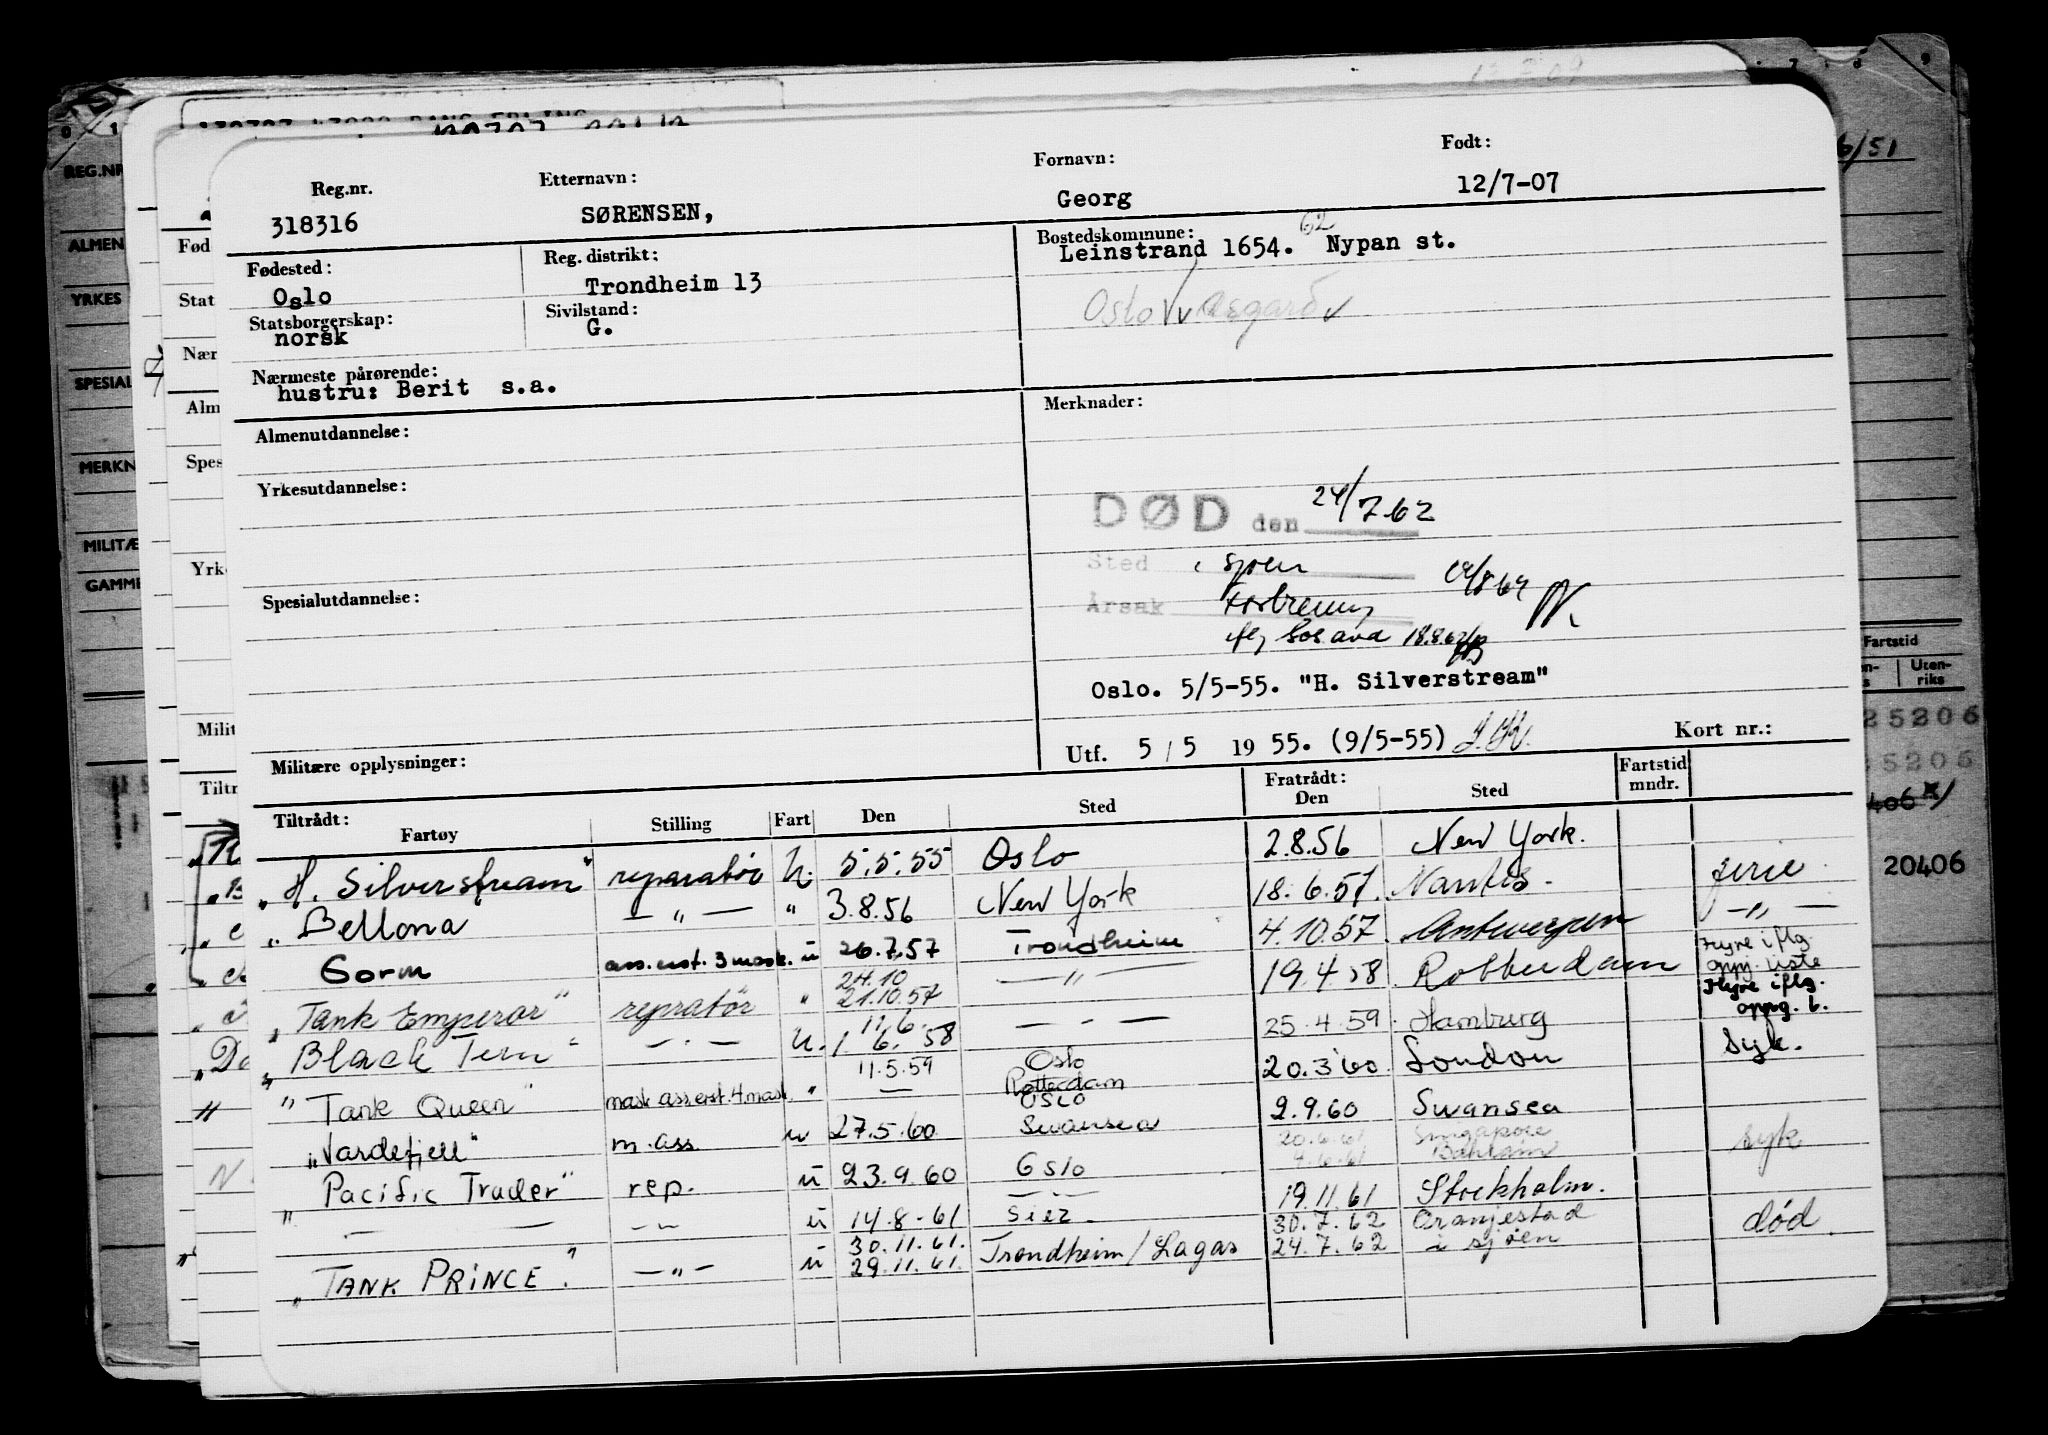 Reg.nr. Etternavn: Fornavn: Født:
318316 SØRENSEN, Georg 12/7-07
Fødested: Reg. distrikt: Bostedskommune: 62
Oslo Trondheim 13 Leinstrand 1654. Nypan st.
Statsborgerskap: Sivilstand: Oslo
norsk G.
Nærmeste pårørende:
hustru: Berit s.a.
Almenutdannelse: Merknader:
Yrkesutdannelse:
DØD den 24/7.62
Sted i sjøen
Spesialutdannelse: Årsak
18.8.62
Oslo. 5/5-55. "H. Silverstream"
Militære opplysninger: Utf. 5/5 1955. (9/5-55) Kort nr.:
Tiltrådt: Fratrådt: Fartstid
Fartøy Stilling Fart Den Sted Den Sted mndr.
„H. Silverstream" reparatør U. 5.5.55 Oslo 2.8.56 New York.
„Bellona — „ — " 3.8.56 New York 18.6.57. Nantes. ferie.
Gorm ass.erst. 3 mask. u 26.7.57 Trondheim 4.10.57. Antwerpen — „ —
24.10 Hyre iflg. oppg. liste
„Tank Emperor" repratør " 21.10.57 — " — 19.4.58 Rotterdam Hyre iflg.
11.6. oppg. l.
„Black Tern" — " — U. 1.6.58 — " — 25.4.59 Hamburg
11.5.59 Oslo
" Tank Queen" mask. ass.erst.4.mask. " — Rotterdam 20.3.60. London Syk.
Oslo
„Vardefjell" m.ass. u 27.5.60 Swansea 2.9.60 Swansea
20.6.61 Singapore
„Pacific Trader" rep. u 23.9.60 Oslo 9.6.61 Bahrain syk
— — — „ — u 14.8.61 Suez. 19.11.61 Stockholm.
30.11.61. 30.7.62 Oranjestad
„TANK PRINCE". — „ — u 29.11.61. Trondheim/Lagas 24.7.62 i sjøen død.
6/51
REG.NR
ALMEN
YRKES
SPESIAL
MERKN
MILITÆ
GAMME
Fød
Stat
Nær
Alm
Spes
Yrk
Milit
Tiltr
Fartstid
Uten-
riks
25206
5206
406
20406